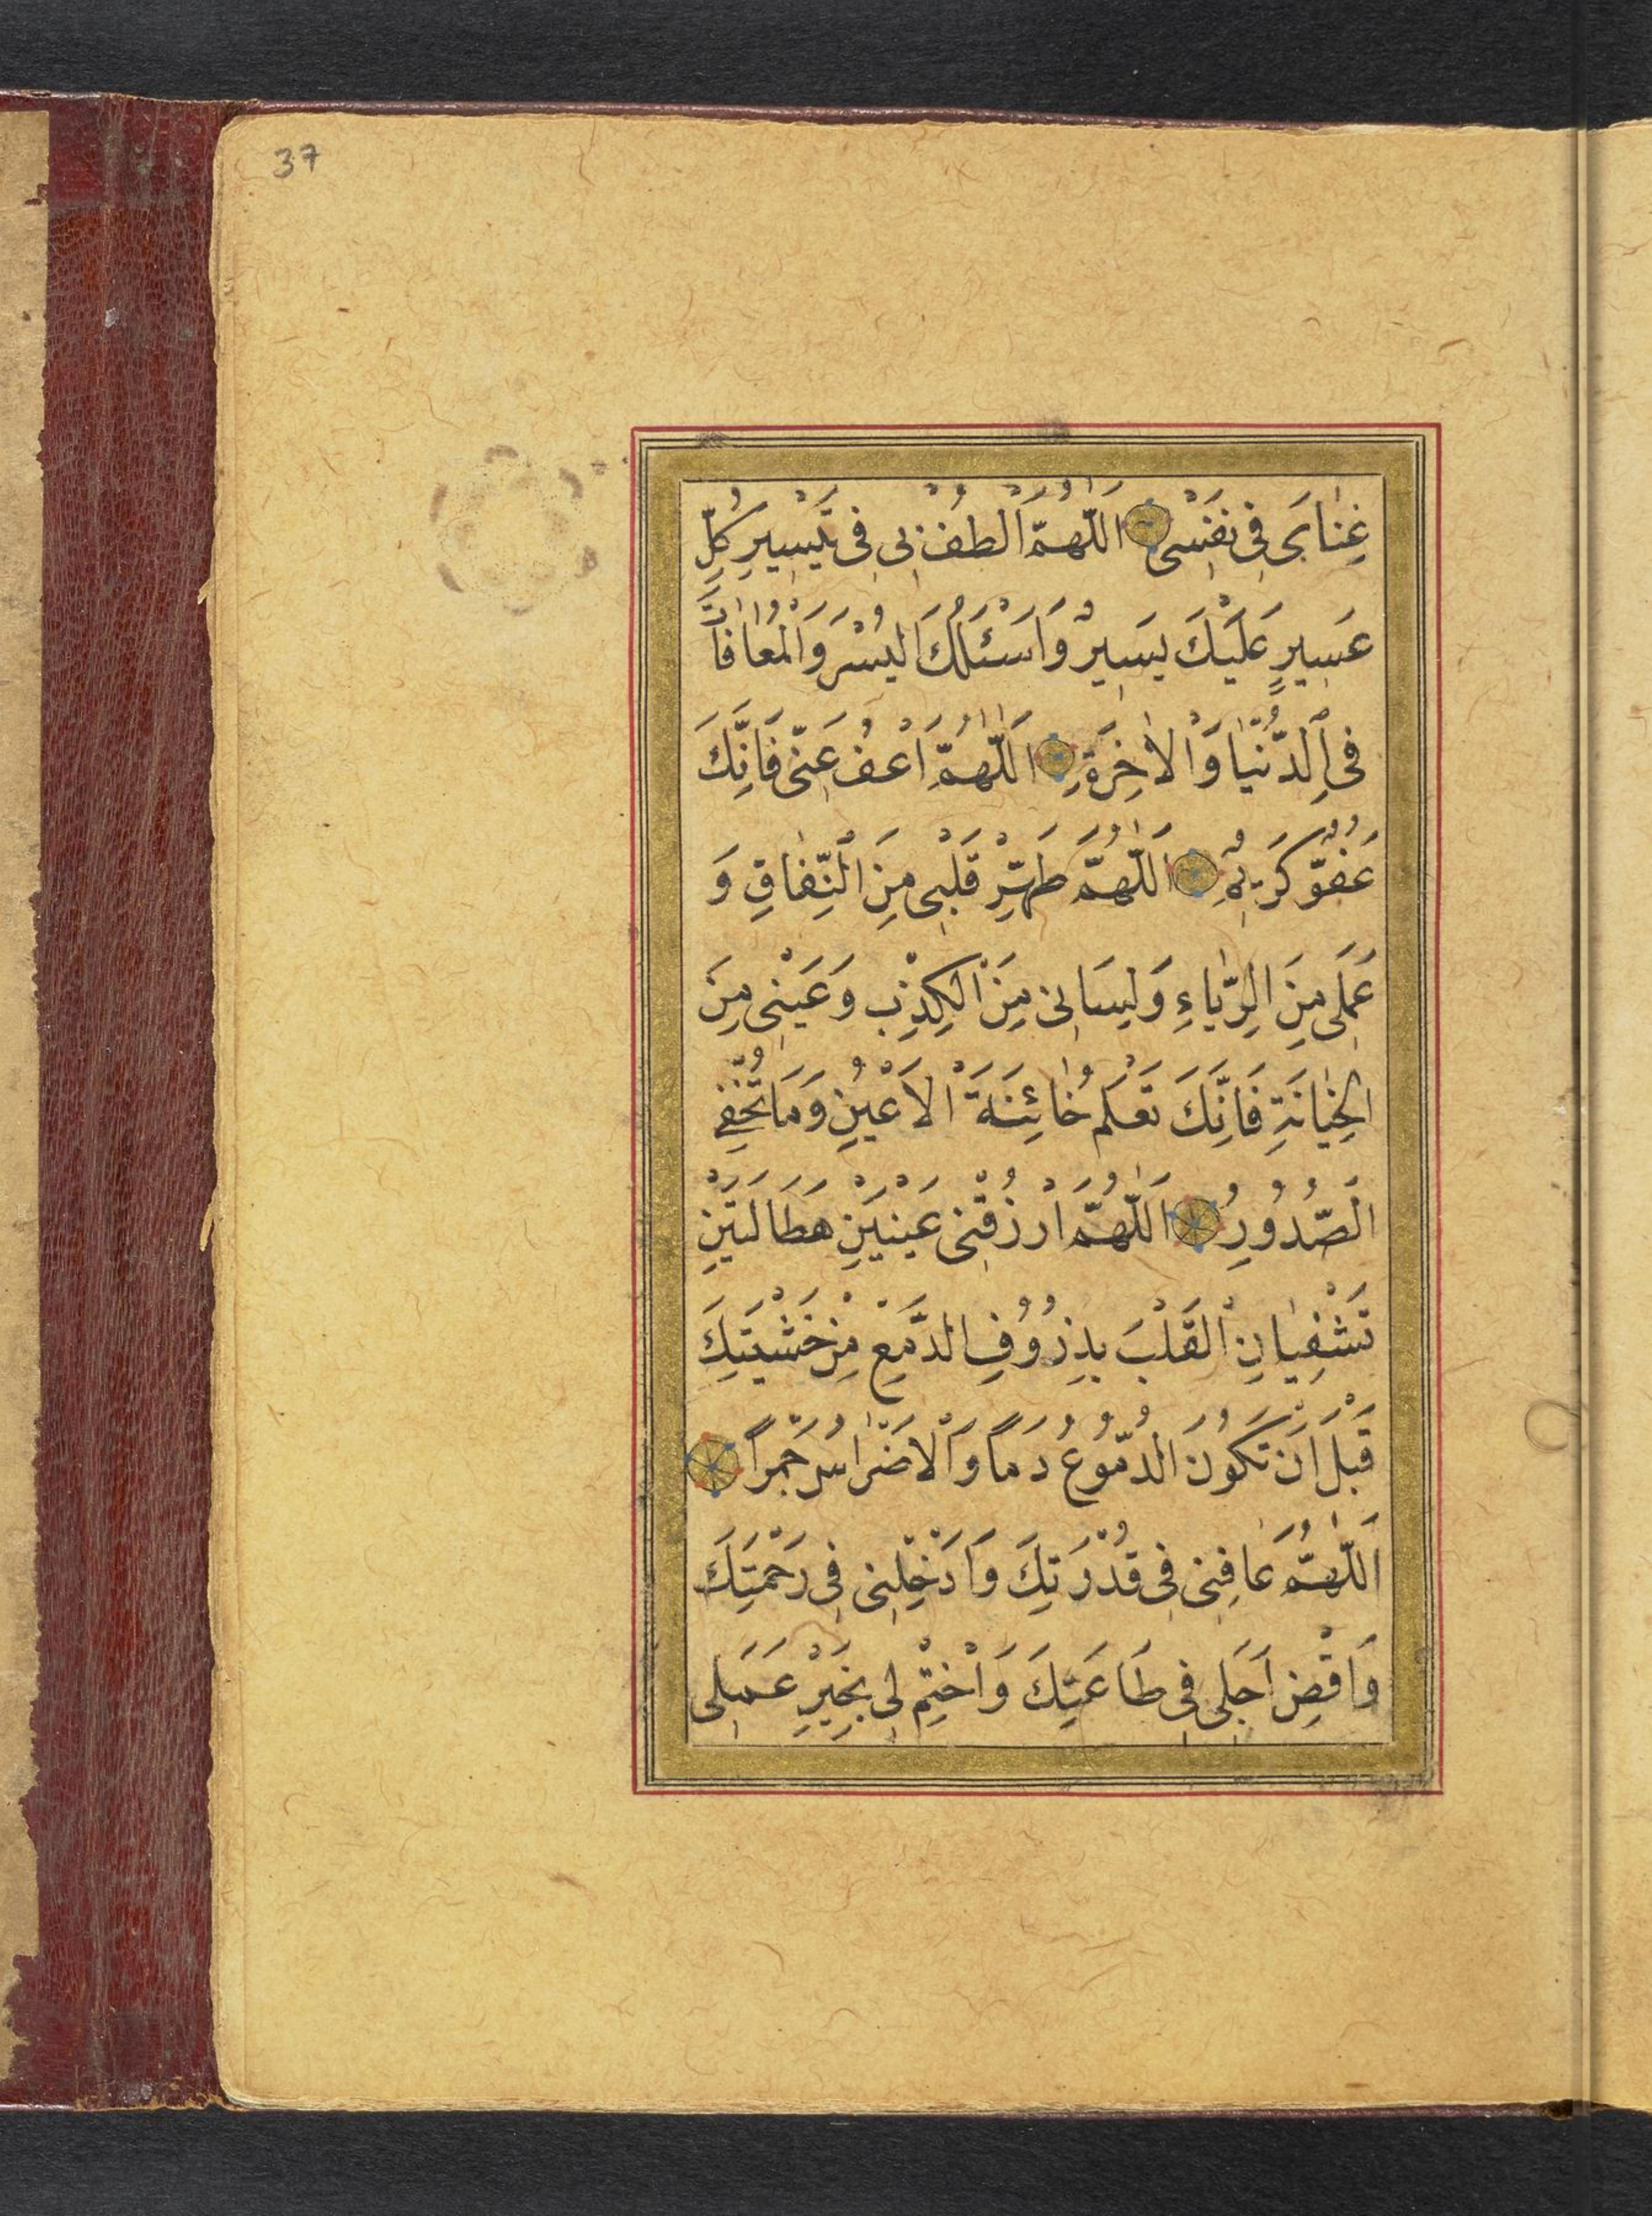 37
غِنٰایَ فِی نَفْسِی اَللّٰهُمَّ اَلْطُفْ بِی فِی تَیْسِیرِ كُلِّ
عَسِیرٍ عَلَیْكَ یَسِیرٌ وَاَسْئَلُكَ الْیُسْرَ وَالْمُعٰافٰاتَ
فِی الدُّنْیٰا وَالْاٰخِرَةِ اَللّٰهُمَّ اَعْفُ عَنِّی فَاِنَّكَ
عَفُوٌّ كَرِیمٌ اَللّٰهُمَّ طَهِّرْ قَلْبِی مِنَ النِّفٰاقِ وَ
عَمَلِی مِنَ الرِّیٰاءِ وَلِسَانِی مِنَ الْكِذْبِ وَعَیْنِی مِنَ
الْخِیٰانَةِ فَاِنَّكَ تَعْلَمُ خٰائِنَةَ الْاَعْیُنِ وَمَا تُخْفِی
الصُّدُورُ اَللّٰهُمَّ ارْزُقْنِی عَیْنَیْنِ هَطَالَتَیْنِ
تَشْفِیٰانِ الْقَلْبَ بِذِرُوُفِ الدَّمْعِ مِنْ خَشْیَتِكَ
قَبْلَ اَنْ تَكُونَ الدُّمُوعُ دَمًا وَالْاَضْرٰاسُ جَمْرًا
اَللّٰهُمَّ عَافِنِی فِی قُدْرَتِكَ وَاَدْخِلْنِی فِی رَحْمَتِكَ
وَاقْضِ اَجَلِی فِی طَاعَتِكَ وَاخْتِمْ لِی بِخَیْرِ عَمَلِی